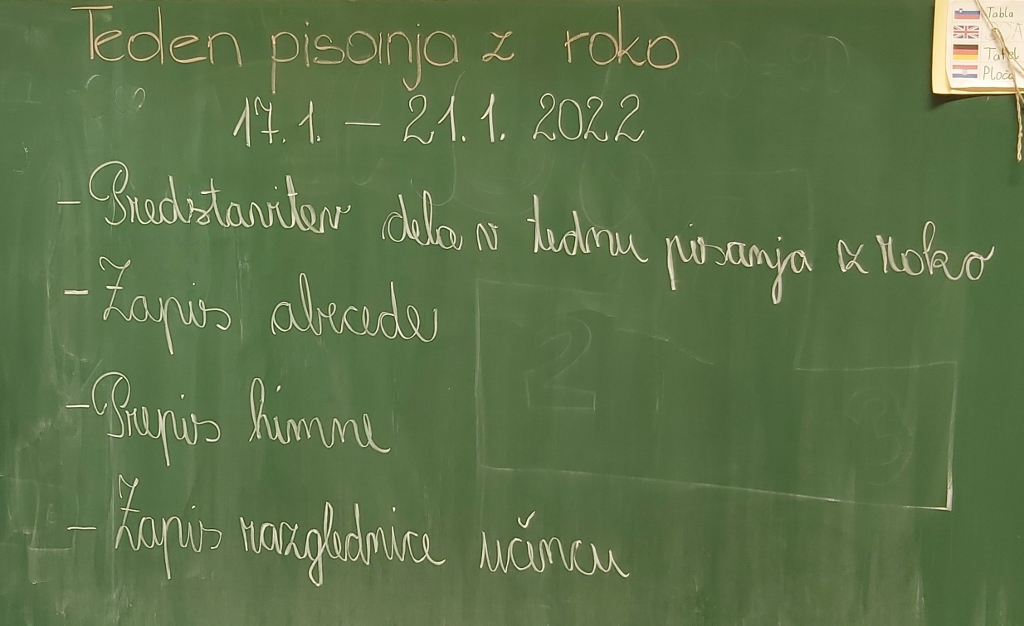 Teden pisanja z roko
17.1. – 21.1. 2022
– Predstavitev dela v tednu pisanja z roko
– Zapis abecede
– Prepis himne
– Zapis razglednice učencu
Tabla
Tafel
Ploča
2
3